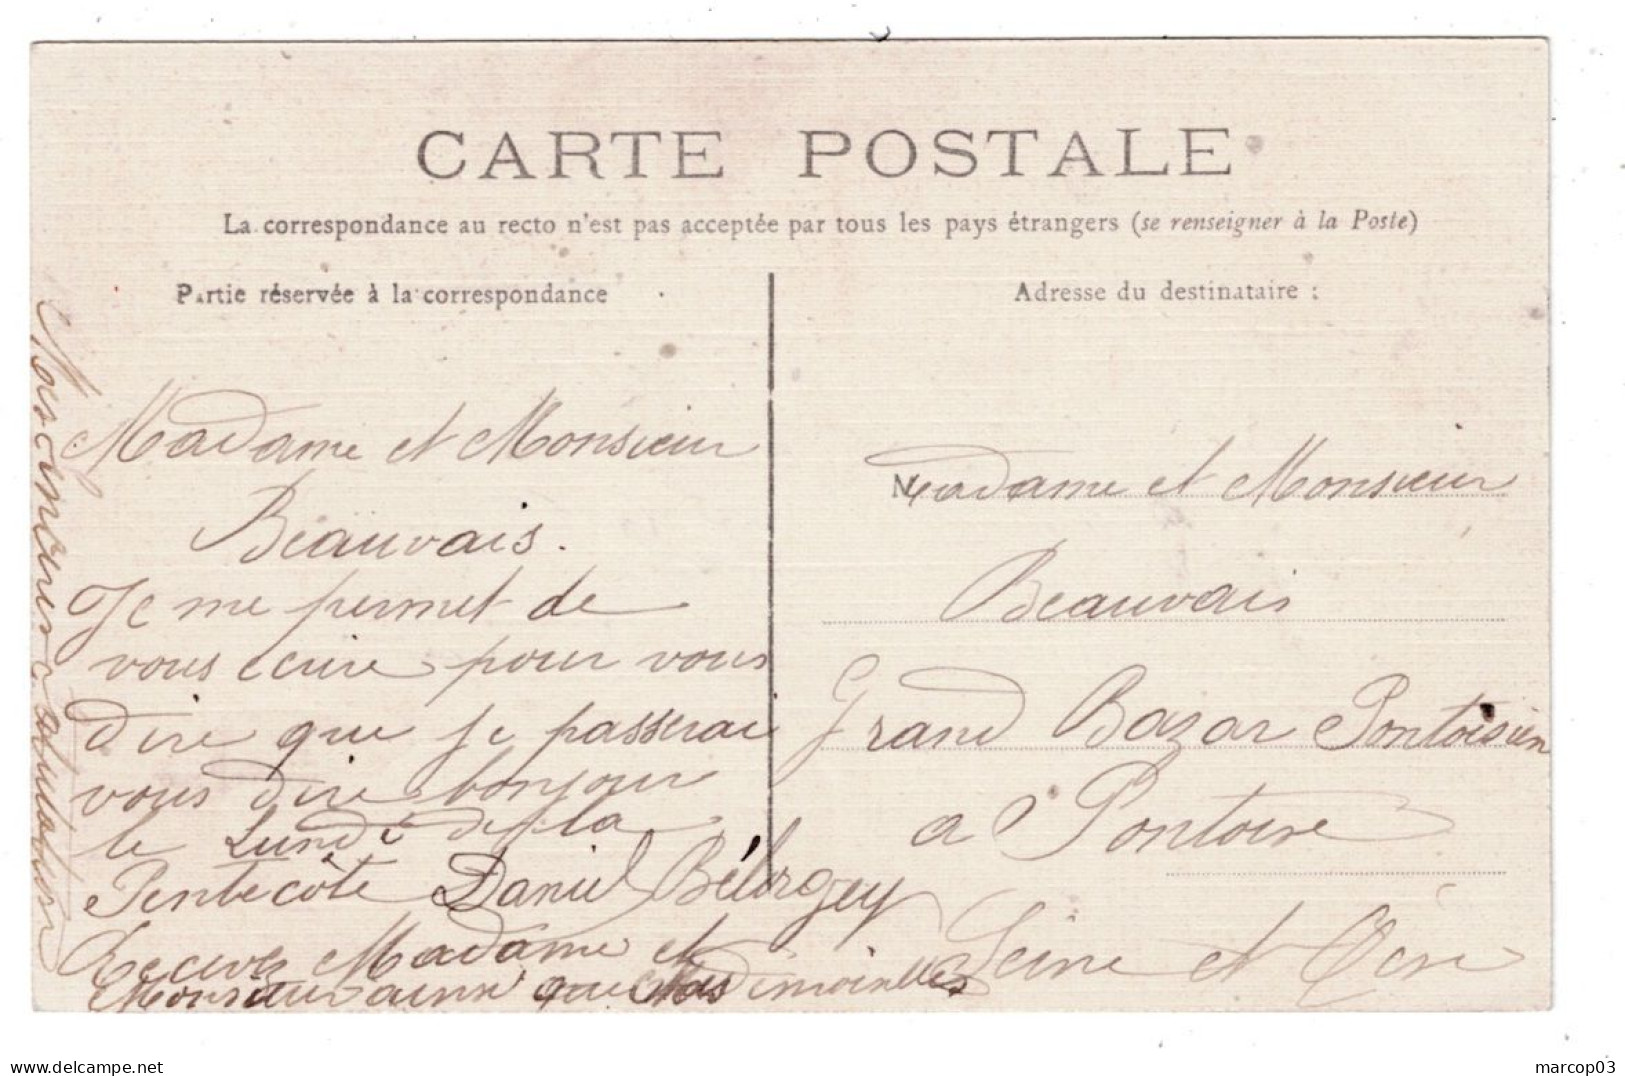 CARTE POSTALE
La correspondance au recto n'est pas acceptée par tous les pays étrangers (se renseigner à la Poste)
Partie réservée à la correspondance
Madame et Monsieur
Beauvais.
Je me permet de
vous ecrire pour vous
dire que je passerai
vous dire bonjour
le Lundi de la
Pentecôte Daniel Bélorgey
Recevez Madame et
Monsieur ainsi que Mesdemoiselles
Mes sinceres salutation
Adresse du destinataire :
Madame et Monsieur
Beauvais
Grand Bazar Pontoisien
a Pontoise
Seine et Oise
delcampe.net
marcop03